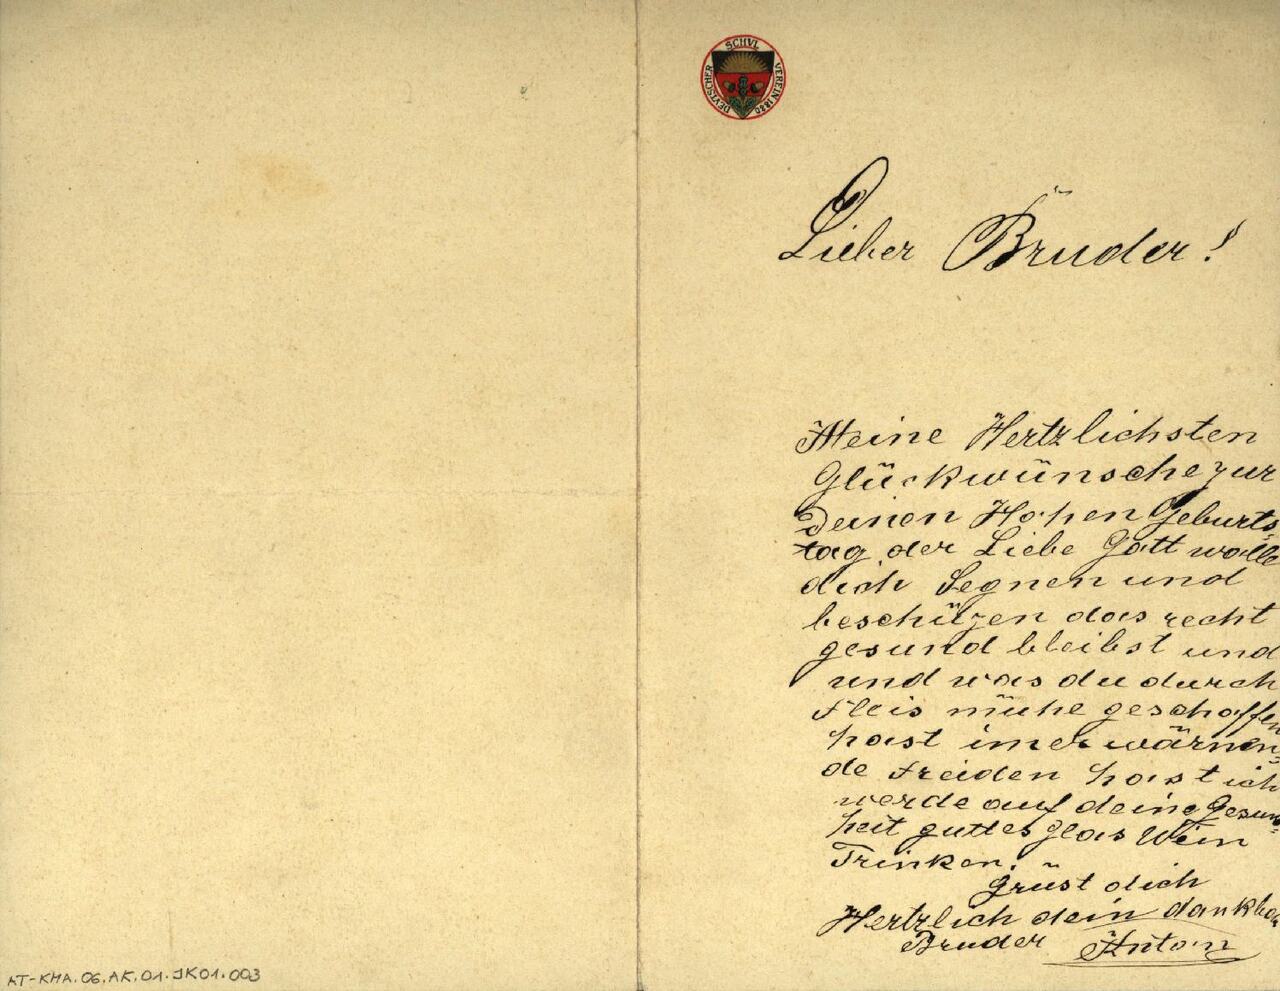 DEVTSCHER SCHVL VEREIN 1880
Lieber Bruder!
Meine Hertzlichsten
Glückwünsche zur
Deinen Hohen Geburts-
tag der Liebe Gott wolle
dich Segnen und
beschützen das recht
gesund bleibst und
und was du durch
Fleis mühe geschaffen
hast imer wären
de Freiden hast ich
werde auf deine Gesun-
heit guttes glas Wein
Trinken.
Grüst dich
Hertzlich dein dankba
Bruder Anton
AT-KHA.06.AK.01.JK01.003